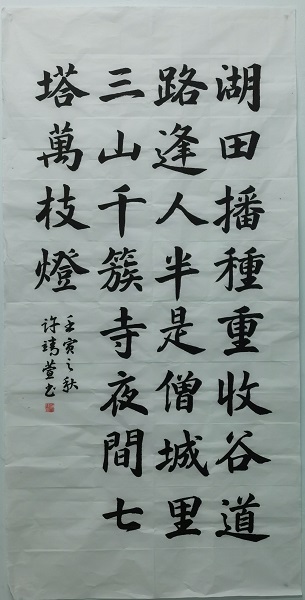 湖田播種重收谷道
路逢人半是僧城里
三山千簇寺夜間七
塔萬枝燈
壬寅之秋
许靖萱书